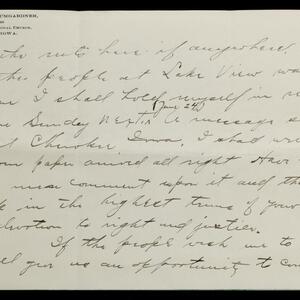 UMGARDNER,
IONAL CHURCH,
IOWA.
the nuts here if anywhere
the people at Lake View wa
I shall hold myself in
(June 24)
Sunday next. A message
at Cherokee Iowa, I shall
paper arrived all right Have
comment upon it and th
in the highest terms of your
devotion to right and justice.
If the people wish me to
give us an opportunity to com